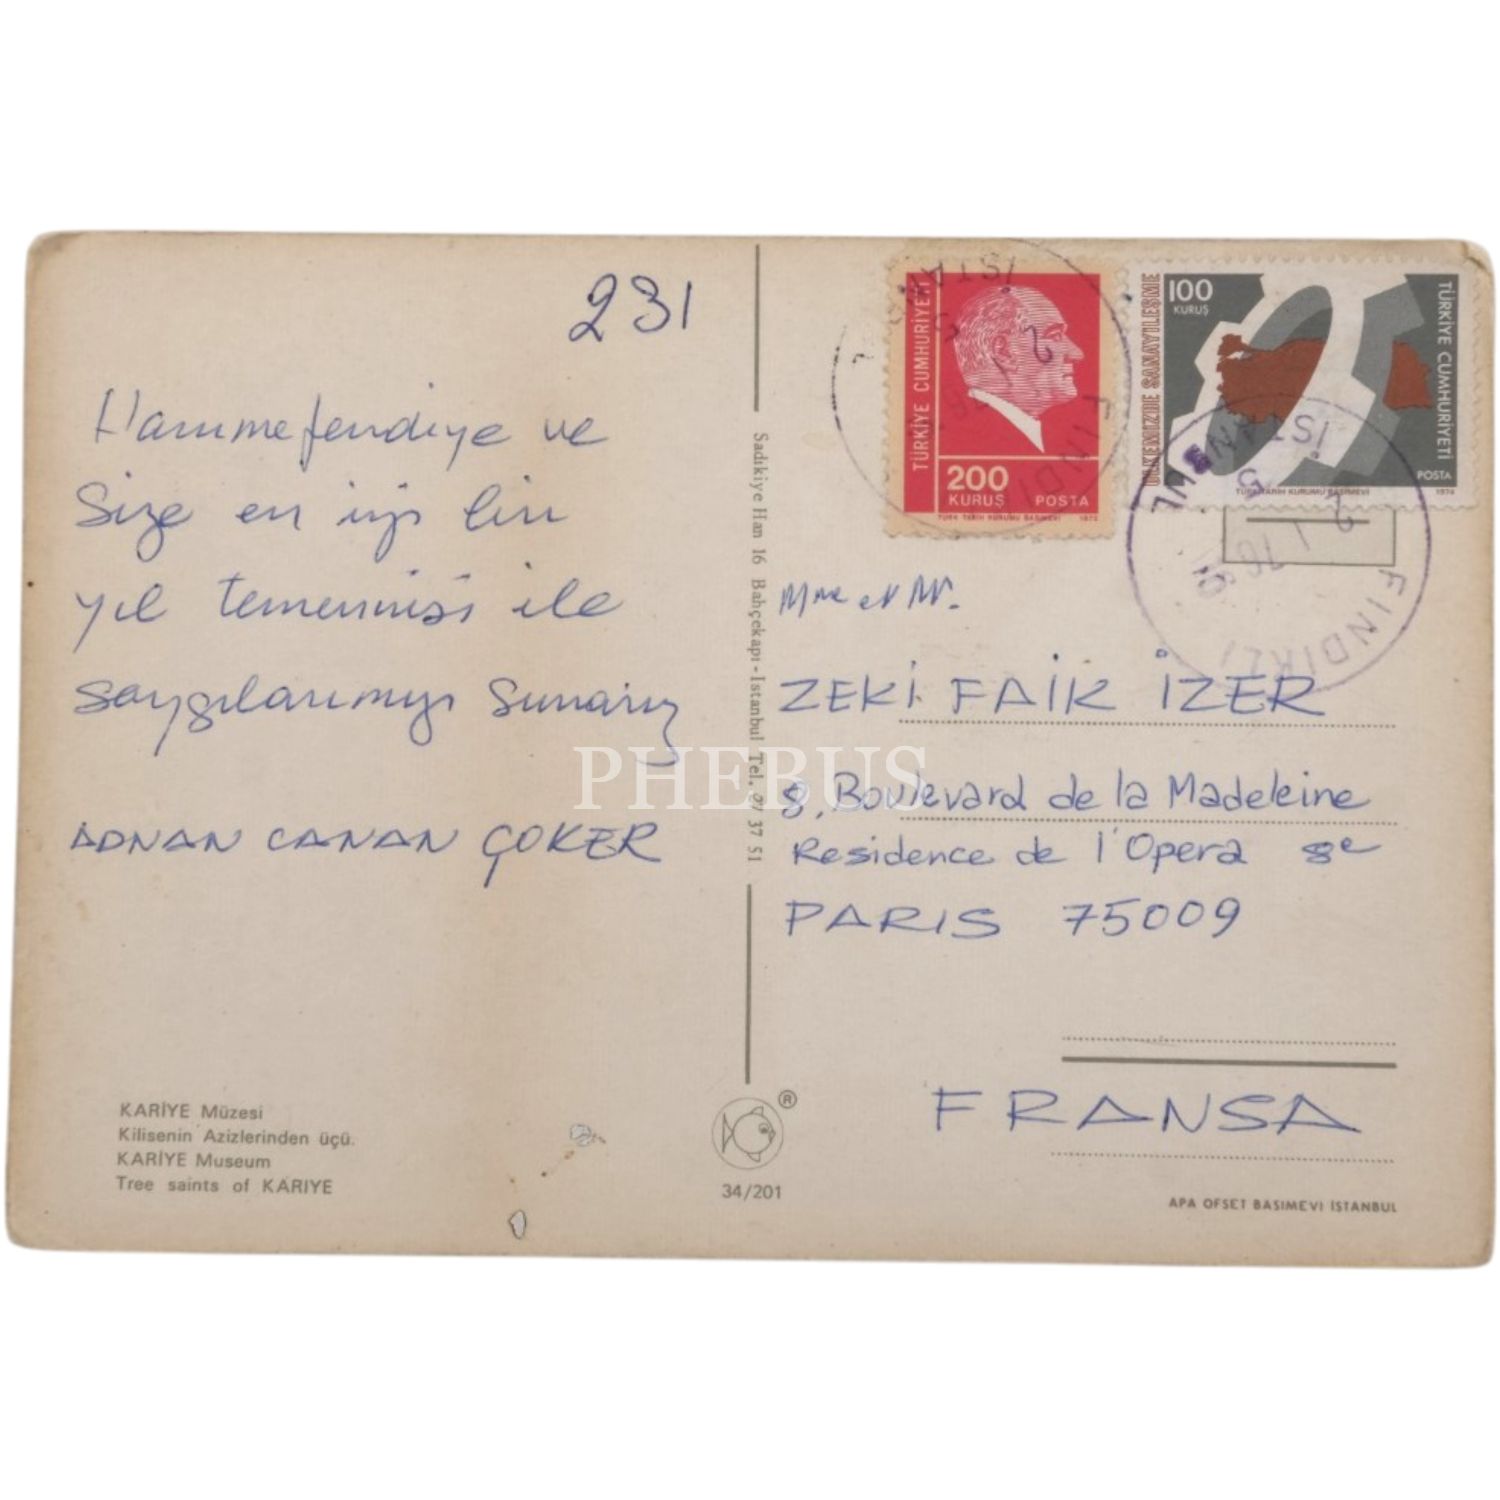 231
Hanımefendiye ve
Size en iyi bir
yıl temennisi ile
saygılarımızı sunarız
ADNAN CANAN ÇOKER
KARİYE Müzesi
Kilisenin Azizlerinden üçü.
KARİYE Museum
Tree saints of KARIYE
Sadıkiye Han 16 Bahçekapı - Istanbul Tel. 27 37 51
®
34/201
TÜRKİYE CUMHURİYETİ
200
KURUŞ POSTA
TÜRK TARİH KURUMU BASIMEVİ
100
KURUŞ
ÜLKEMİZDE SANAYİLEŞME
TÜRKİYE CUMHURİYETİ
POSTA
TÜRK TARİH KURUMU BASIMEVİ 1974
İSTANBUL
FINDIKLI
Mme et Mr.
ZEKİ FAİK İZER
8, Boulevard de la Madeleine
Residence de l'Opera 8e
PARIS 75009
FRANSA
APA OFSET BASIMEVİ İSTANBUL
PHEBUS